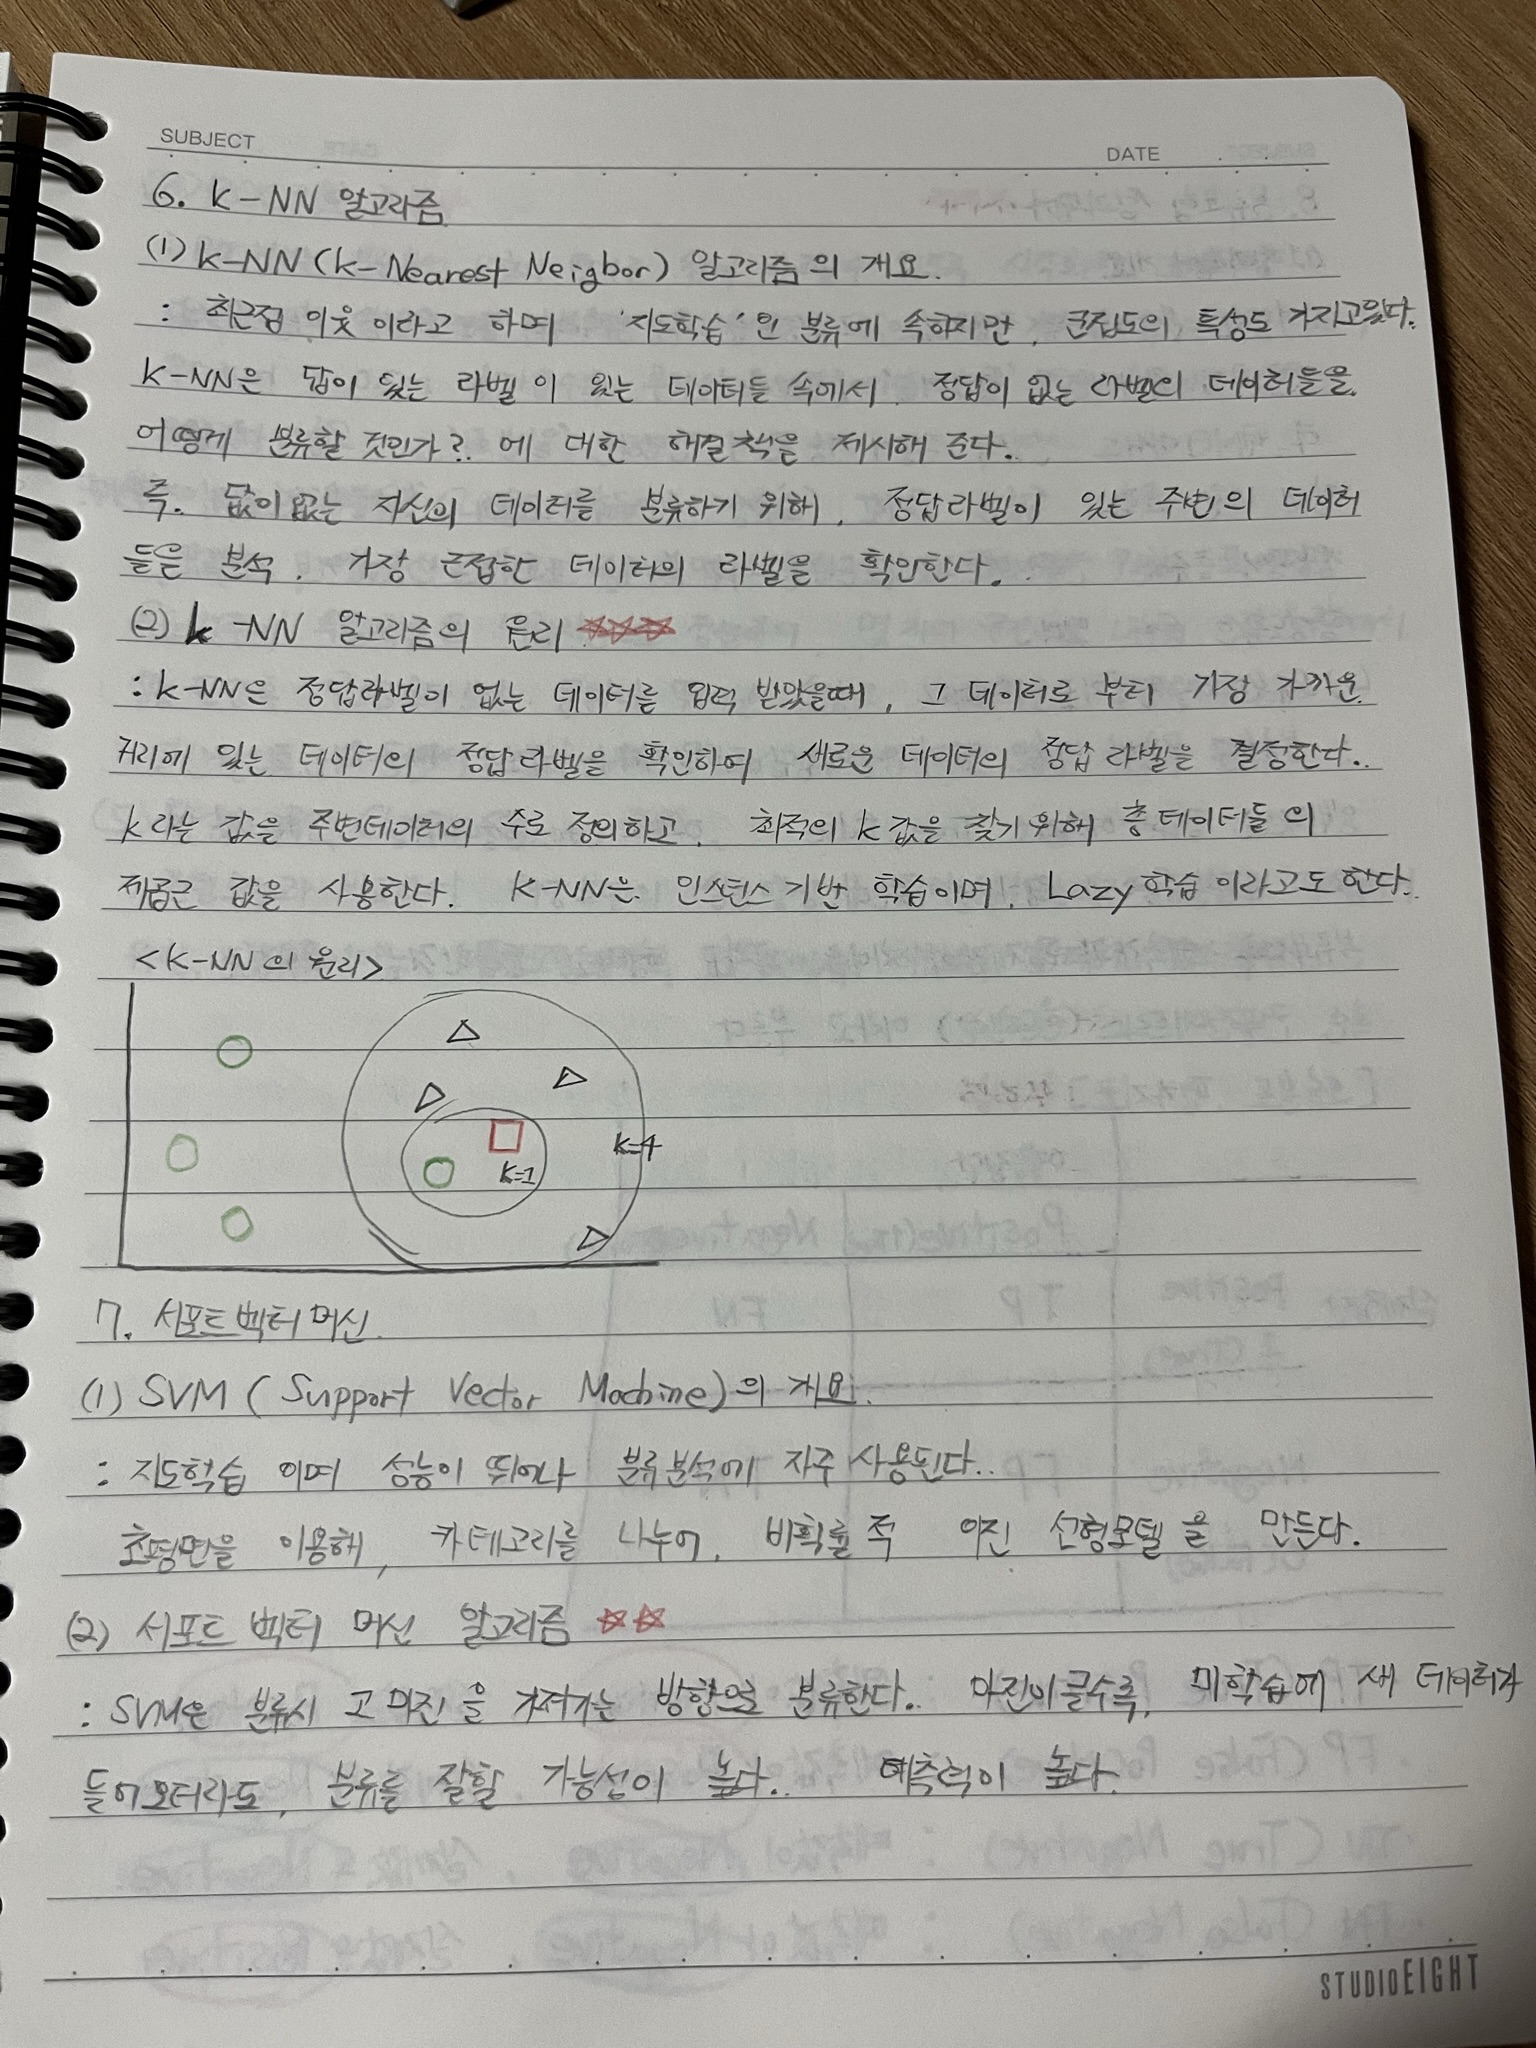 SUBJECT
DATE
6. K-NN 알고리즘
(1) K-NN (k-Nearest Neigbor) 알고리즘의 개요.
: 최근접 이웃이라고 하며 '지도학습'인 분류에 속하지만, 군집도의 특성도 가지고있다.
K-NN은 답이 있는 라벨이 있는 데이터들 속에서, 정답이 없는 라벨의 데이터들을
어떻게 분류할 것인가? 에 대한 해결책을 제시해 준다.
즉, 답이 없는 자신의 데이터를 분류하기 위해, 정답라벨이 있는 주변의 데이터
들을 분석, 가장 근접한 데이터의 라벨을 확인한다.
(2) k-NN 알고리즘의 원리 ☆☆☆
: K-NN은 정답라벨이 없는 데이터를 입력 받았을때, 그 데이터로 부터 가장 가까운
거리에 있는 데이터의 정답라벨을 확인하여 새로운 데이터의 정답 라벨을 결정한다.
k라는 값을 주변데이터의 수로 정의하고, 최적의 k값을 찾기 위해 총 데이터들의
제곱근 값을 사용한다. K-NN은 인스턴스 기반 학습이며, Lazy 학습이라고도 한다.
<K-NN의 원리>
K=4
K=1
7. 서포트 벡터 머신
(1) SVM ( Support Vector Machine)의 개요.
: 지도학습 이며 성능이 뛰어나 분류분석에 자주 사용된다.
초평면을 이용해, 카테고리를 나누어, 비확률적 이진 선형모델을 만든다.
(2) 서포트 벡터 머신 알고리즘 ☆☆
: SVM은 분류시 고 마진을 가져가는 방향으로 분류한다. 마진이 클수록, 미학습에 새 데이터가
들어오더라도, 분류를 잘할 가능성이 높다. 예측력이 높다.
STUDIOEIGHT